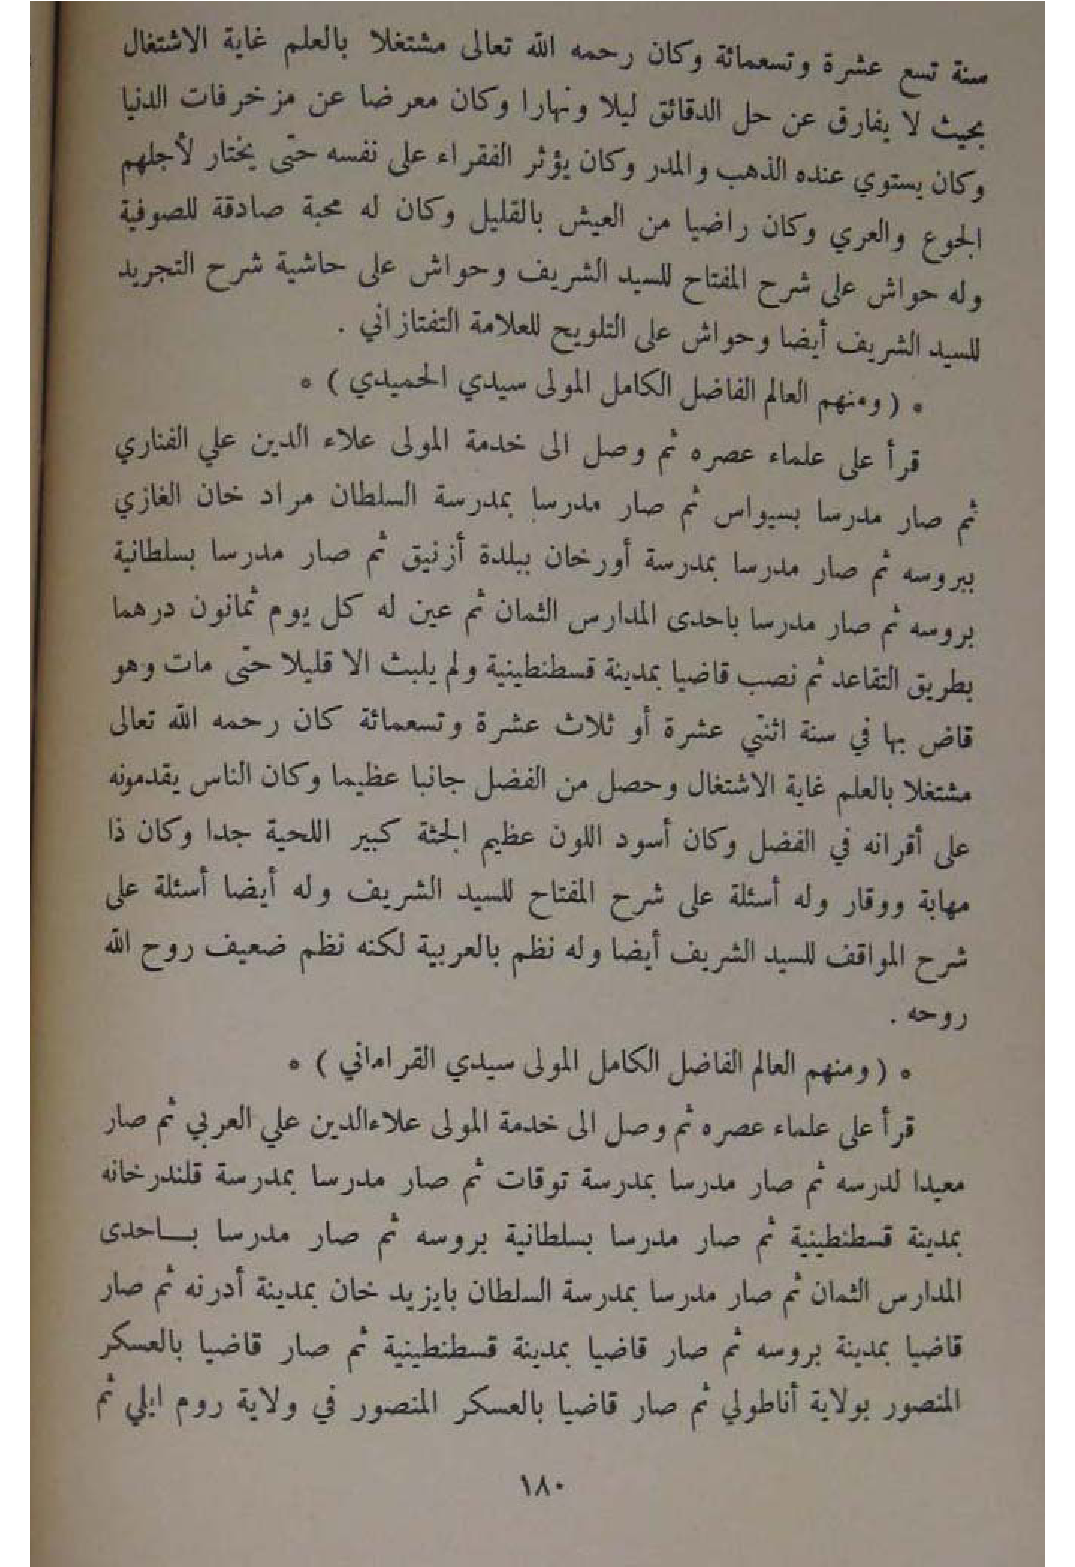 سنة تسع عشرة وتسعمائة وكان رحمه الله تعالى مشتغلا بالعلم غاية الاشتغال
بحيث لا يفارق عن حل الدقائق ليلا ونهارا وكان معرضا عن مزخرفات الدنيا
وكان يستوي عنده الذهب والمدر وكان يؤثر الفقراء على نفسه حتى يختار لأجلهم
الجوع والعري وكان راضيا من العيش بالقليل وكان له محبة صادقة للصوفية
وله حواش على شرح المفتاح للسيد الشريف وحواش على حاشية شرح التجريد
للسيد الشريف أيضا وحواش على التلويح للعلامة التفتازاني .
* ( ومنهم العالم الفاضل الكامل المولى سيدي الحميدي ) *
قرأ على علماء عصره ثم وصل الى خدمة المولى علاء الدين علي الفناري
ثم صار مدرسا بسيواس ثم صار مدرسا بمدرسة السلطان مراد خان الغازي
ببروسه ثم صار مدرسا بمدرسة أورخان ببلدة أزنيق ثم صار مدرسا بسلطانية
بروسه ثم صار مدرسا باحدى المدارس الثمان ثم عين له كل يوم ثمانون درهما
بطريق التقاعد ثم نصب قاضيا بمدينة قسطنطينية ولم يلبث الا قليلا حتى مات وهو
قاض بها في سنة اثنتي عشرة أو ثلاث عشرة وتسعمائة كان رحمه الله تعالى
مشتغلا بالعلم غاية الاشتغال وحصل من الفضل جانبا عظيما وكان الناس يقدمونه
على أقرانه في الفضل وكان أسود اللون عظيم الجثة كبير اللحية جدا وكان ذا
مهابة ووقار وله أسئلة على شرح المفتاح للسيد الشريف وله أيضا أسئلة على
شرح المواقف للسيد الشريف أيضا وله نظم بالعربية لكنه نظم ضعيف روح الله
روحه .
* ( ومنهم العالم الفاضل الكامل المولى سيدي القراماني ) *
قرأ على علماء عصره ثم وصل الى خدمة المولى علاءالدين علي العربي ثم صار
معيدا لدرسه ثم صار مدرسا بمدرسة توقات ثم صار مدرسا بمدرسة قلندرخانه
بمدينة قسطنطينية ثم صار مدرسا بسلطانية بروسه ثم صار مدرسا بـاحدى
المدارس الثمان ثم صار مدرسا بمدرسة السلطان بايزيد خان بمدينة أدرنه ثم صار
قاضيا بمدينة بروسه ثم صار قاضيا بمدينة قسطنطينية ثم صار قاضيا بالعسكر
المنصور بولاية أناطولي ثم صار قاضيا بالعسكر المنصور في ولاية روم ايلي ثم
١٨٠